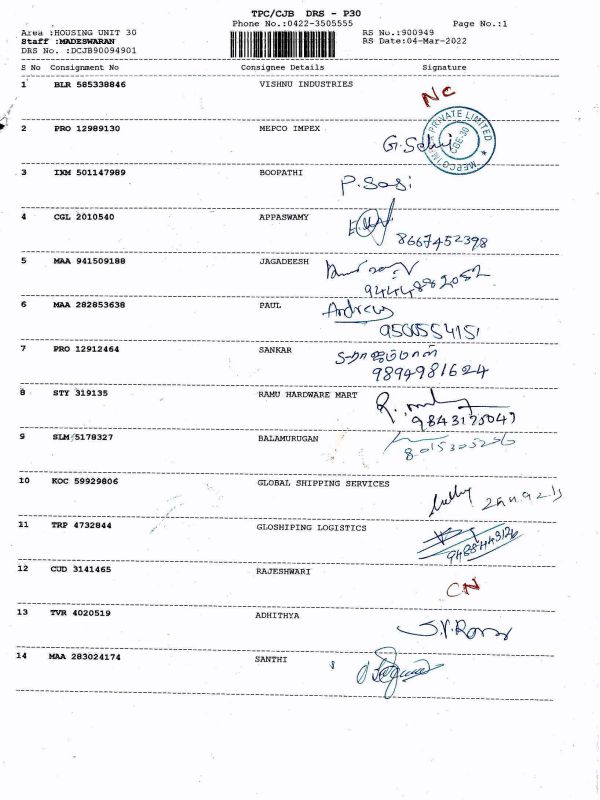 TPC/CJB DRS - P30
Phone No.:0422-3505555 Page No.:1
Area :HOUSING UNIT 30 RS No.:900949
Staff :MADESWARAN RS Date:04-Mar-2022
DRS No. :DCJB90094901
S No Consignment No Consignee Details Signature
1 BLR 585338846 VISHNU INDUSTRIES
NC
2 PRO 12989130 MEPCO IMPEX
PRIVATE LIMITED
CBE-30
3 IXM 501147989 BOOPATHI
P.Sasi
4 CGL 2010540 APPASWAMY
8667452398
5 MAA 941509188 JAGADEESH
9444882052
6 MAA 282853638 PAUL
Andrews
9500554151
7 PRO 12912464 SANKAR
9894981624
8 STY 319135 RAMU HARDWARE MART
9843175047
9 SLM 5178327 BALAMURUGAN
8015305206
10 KOC 59929806 GLOBAL SHIPPING SERVICES
11 TRP 4732844 GLOSHIPING LOGISTICS
12 CUD 3141465 RAJESHWARI
CN
13 TVR 4020519 ADHITHYA
14 MAA 283024174 SANTHI